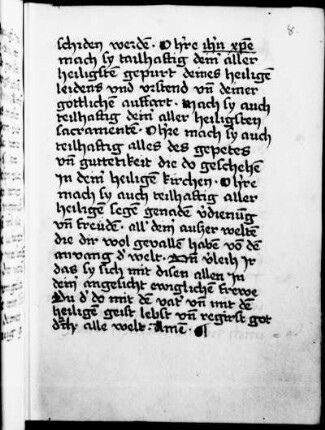 8.
schiden werdē · O h're ih'u xp̄e
mach sy tailhafftig deinˀ aller
heiligstē gepurt deines heiligē
leidens vnd vrstend vn̄ deiner
gottlichē auffart · Mach sy auch
teilhafftig deinˀ aller heiligsten
sacramentē · O h're mach sy auch
teilhafftig alles des gepetes
vn̄ guttetikeit die do geschehē
In deinˀ heiligē kirchen · O h're
mach sy auch teilhafftig aller
heiligē segē genadē v'dienūg
vn̄ freudē · all' dein' außer welte
die dir wol gevallē habē vō dē
anvang d' welt · Vn̄ v'leich Ir
das sy sich mit disen allen In
deinˀ angesicht ewiglichē frewe
Du d' do mit dē vat' vn̄ mit dē
heiligē geist lebst vn̄ regirst got
durch alle welt · Amē ·